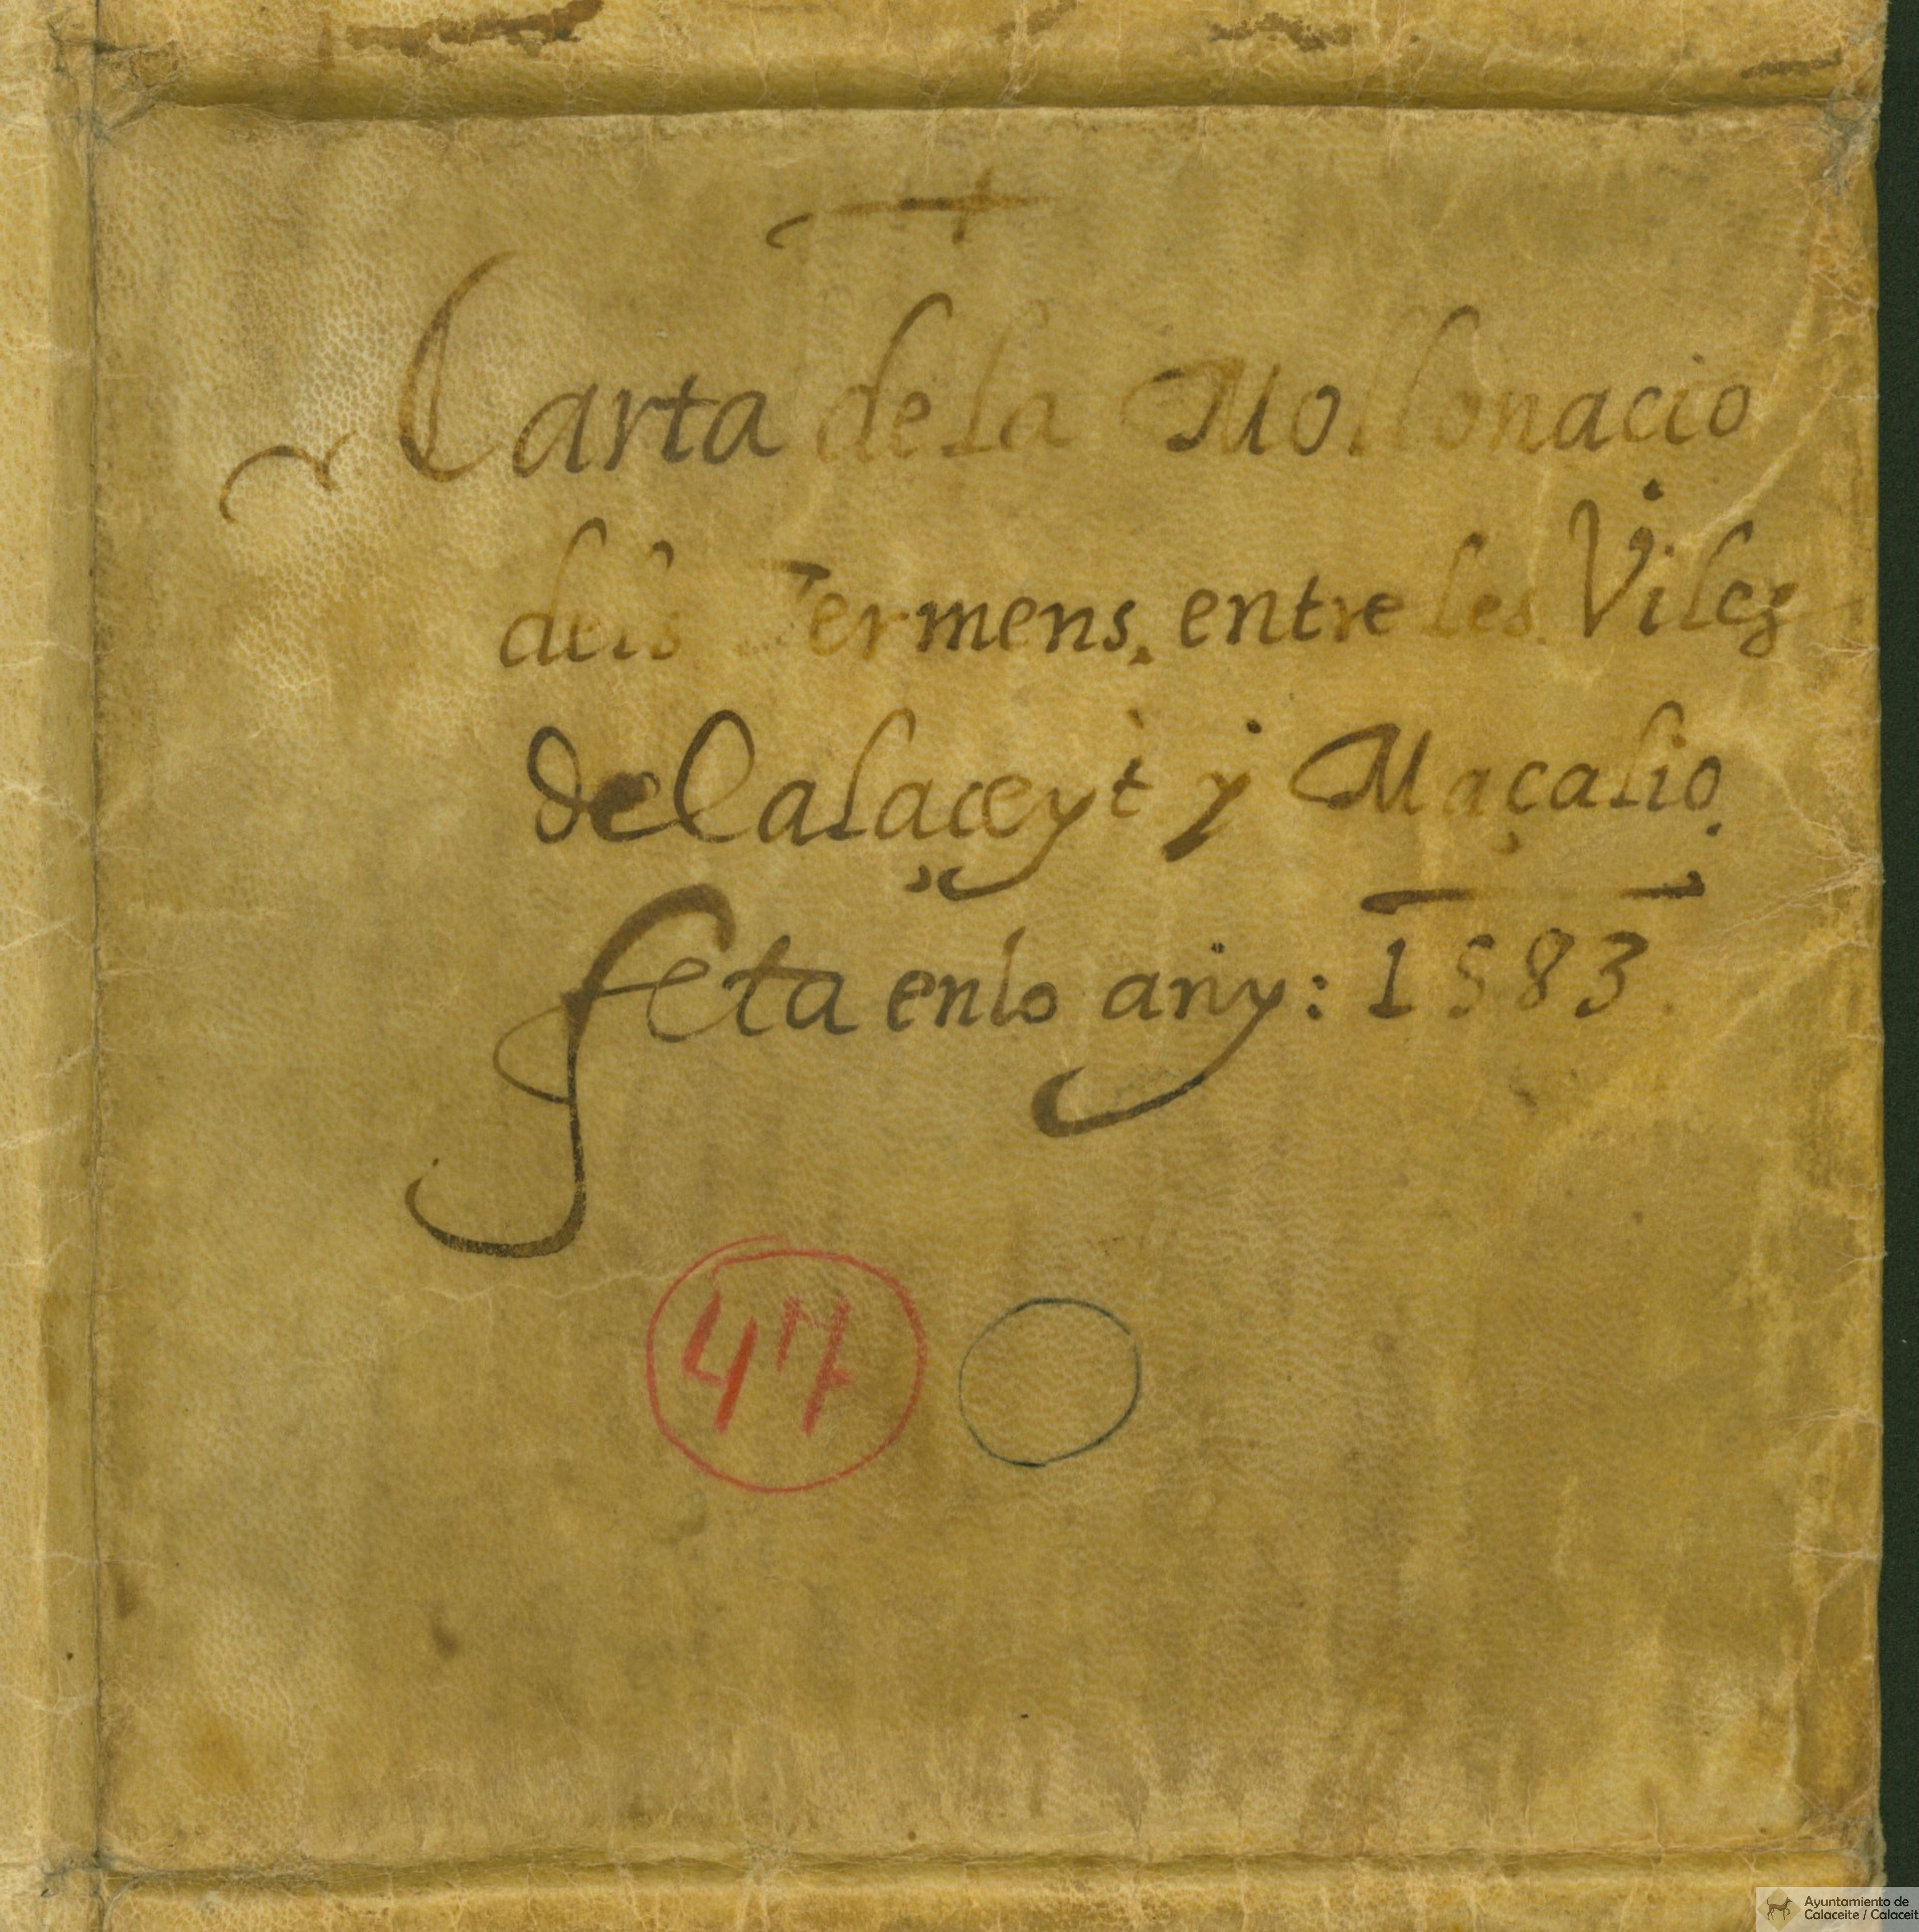 Carta de la Mollonacio
dels Termens, entre les Viles
de Calaceyt y Maçalio
feta en lo any: 1583
47
Ayuntamiento de
Calaceite / Calaceit